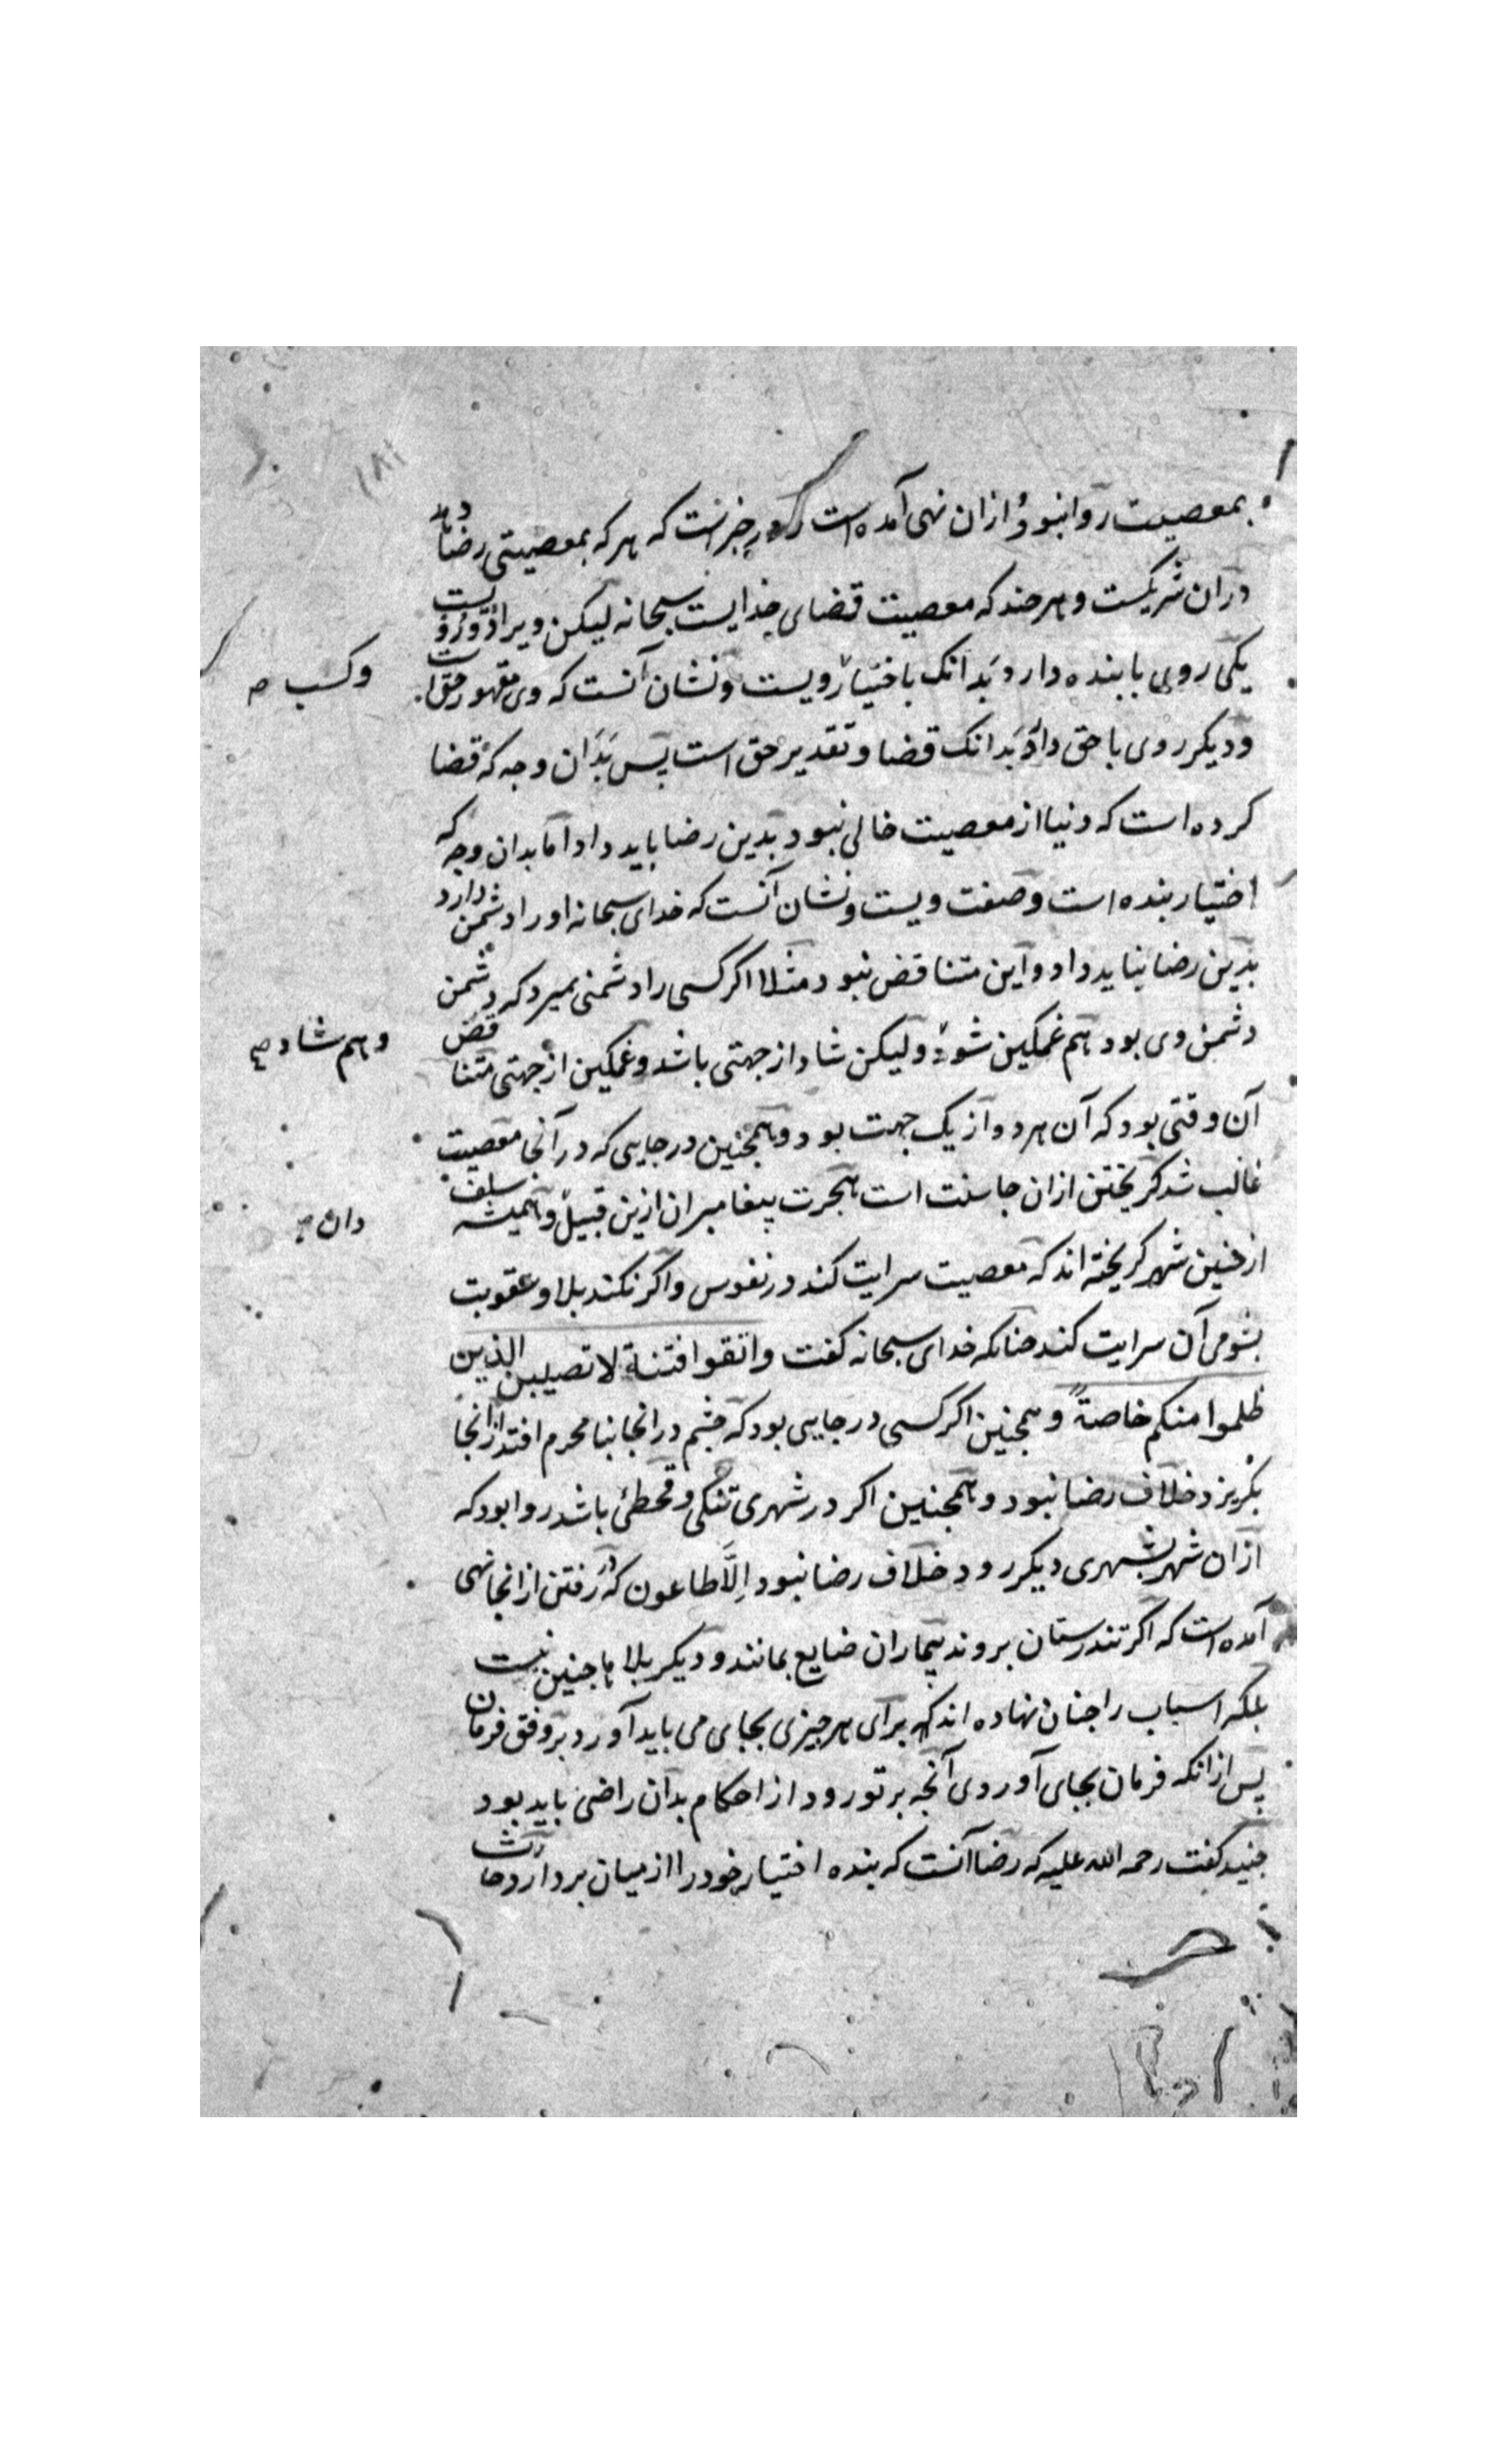 ۱۸۲
بمعصیت روا نبود و ازان نهی آمده است و در خبرست که هر که بمعصیتی رضا دهد
دران شریکست و هر چند که معصیت قضای خدایست سبحانه لیکن ویرا دو رویست
یکی روی با بنده دارد بدانک باختیار ویست و نشان آنست که وی مقهور حقست
وکسب ص
و دیکر روی با حق دارد بدانک قضا و تقدیر حق است پس بدان وجه که قضا
کرده است که دنیا از معصیت خالی نبود بدین رضا باید داد اما بدان وجه که
اختیار بنده است و صفت ویست و نشان آنست که خدای سبحانه او را دشمن دارد
بدین رضا نباید داد و این متناقض نبود مثلا اکر کسی را دشمنی بمیرد که دشمن
دشمن وی بود هم غمکین شود و لیکن شاد از جهتی باشد و غمکین از جهتی متناقض
وهم شاد ص
آن وقتی بود که آن هر دو از یک جهت بود و همجنین در جایی که در آنجا معصیت
غالب شد کریختن ازان جا سنت است هجرت پیغامبران ازین قبیل و همیشه سلف
دان
از چنین شهر کریخته اند که معصیت سرایت کند در نفوس و اکر نکند بلا و عقوبت
بشومی آن سرایت کند جنانکه خدای سبحانه کفت واتقوا فتنة لا تصیبن الذین
ظلموا منکم خاصةً و همجنین اکر کسی در جایی بود که چشم در انجا بنا محرم افتد از انجا
بکریزد خلاف رضا نبود و همجنین اکر در شهری تنکی و قحطی باشد روا بود که
ازان شهر بشهری دیکر رود خلاف رضا نبود اِلَّا طاعون که در رفتن از انجا نهی
آمده است که اکر تندرستان بروند بیماران ضایع بمانند و دیکر بلاها جنین نیست
بلکه اسباب را جنان نهاده اند که برای هر جیزی بجای می باید آورد بر وفق فرمان
پس ازانکه فرمان بجای آوردی آنجه بر تو رود از احکام بدان راضی باید بود
جنید کفت رحمه الله علیه که رضا آنست که بنده اختیار خود را از میان بردارد